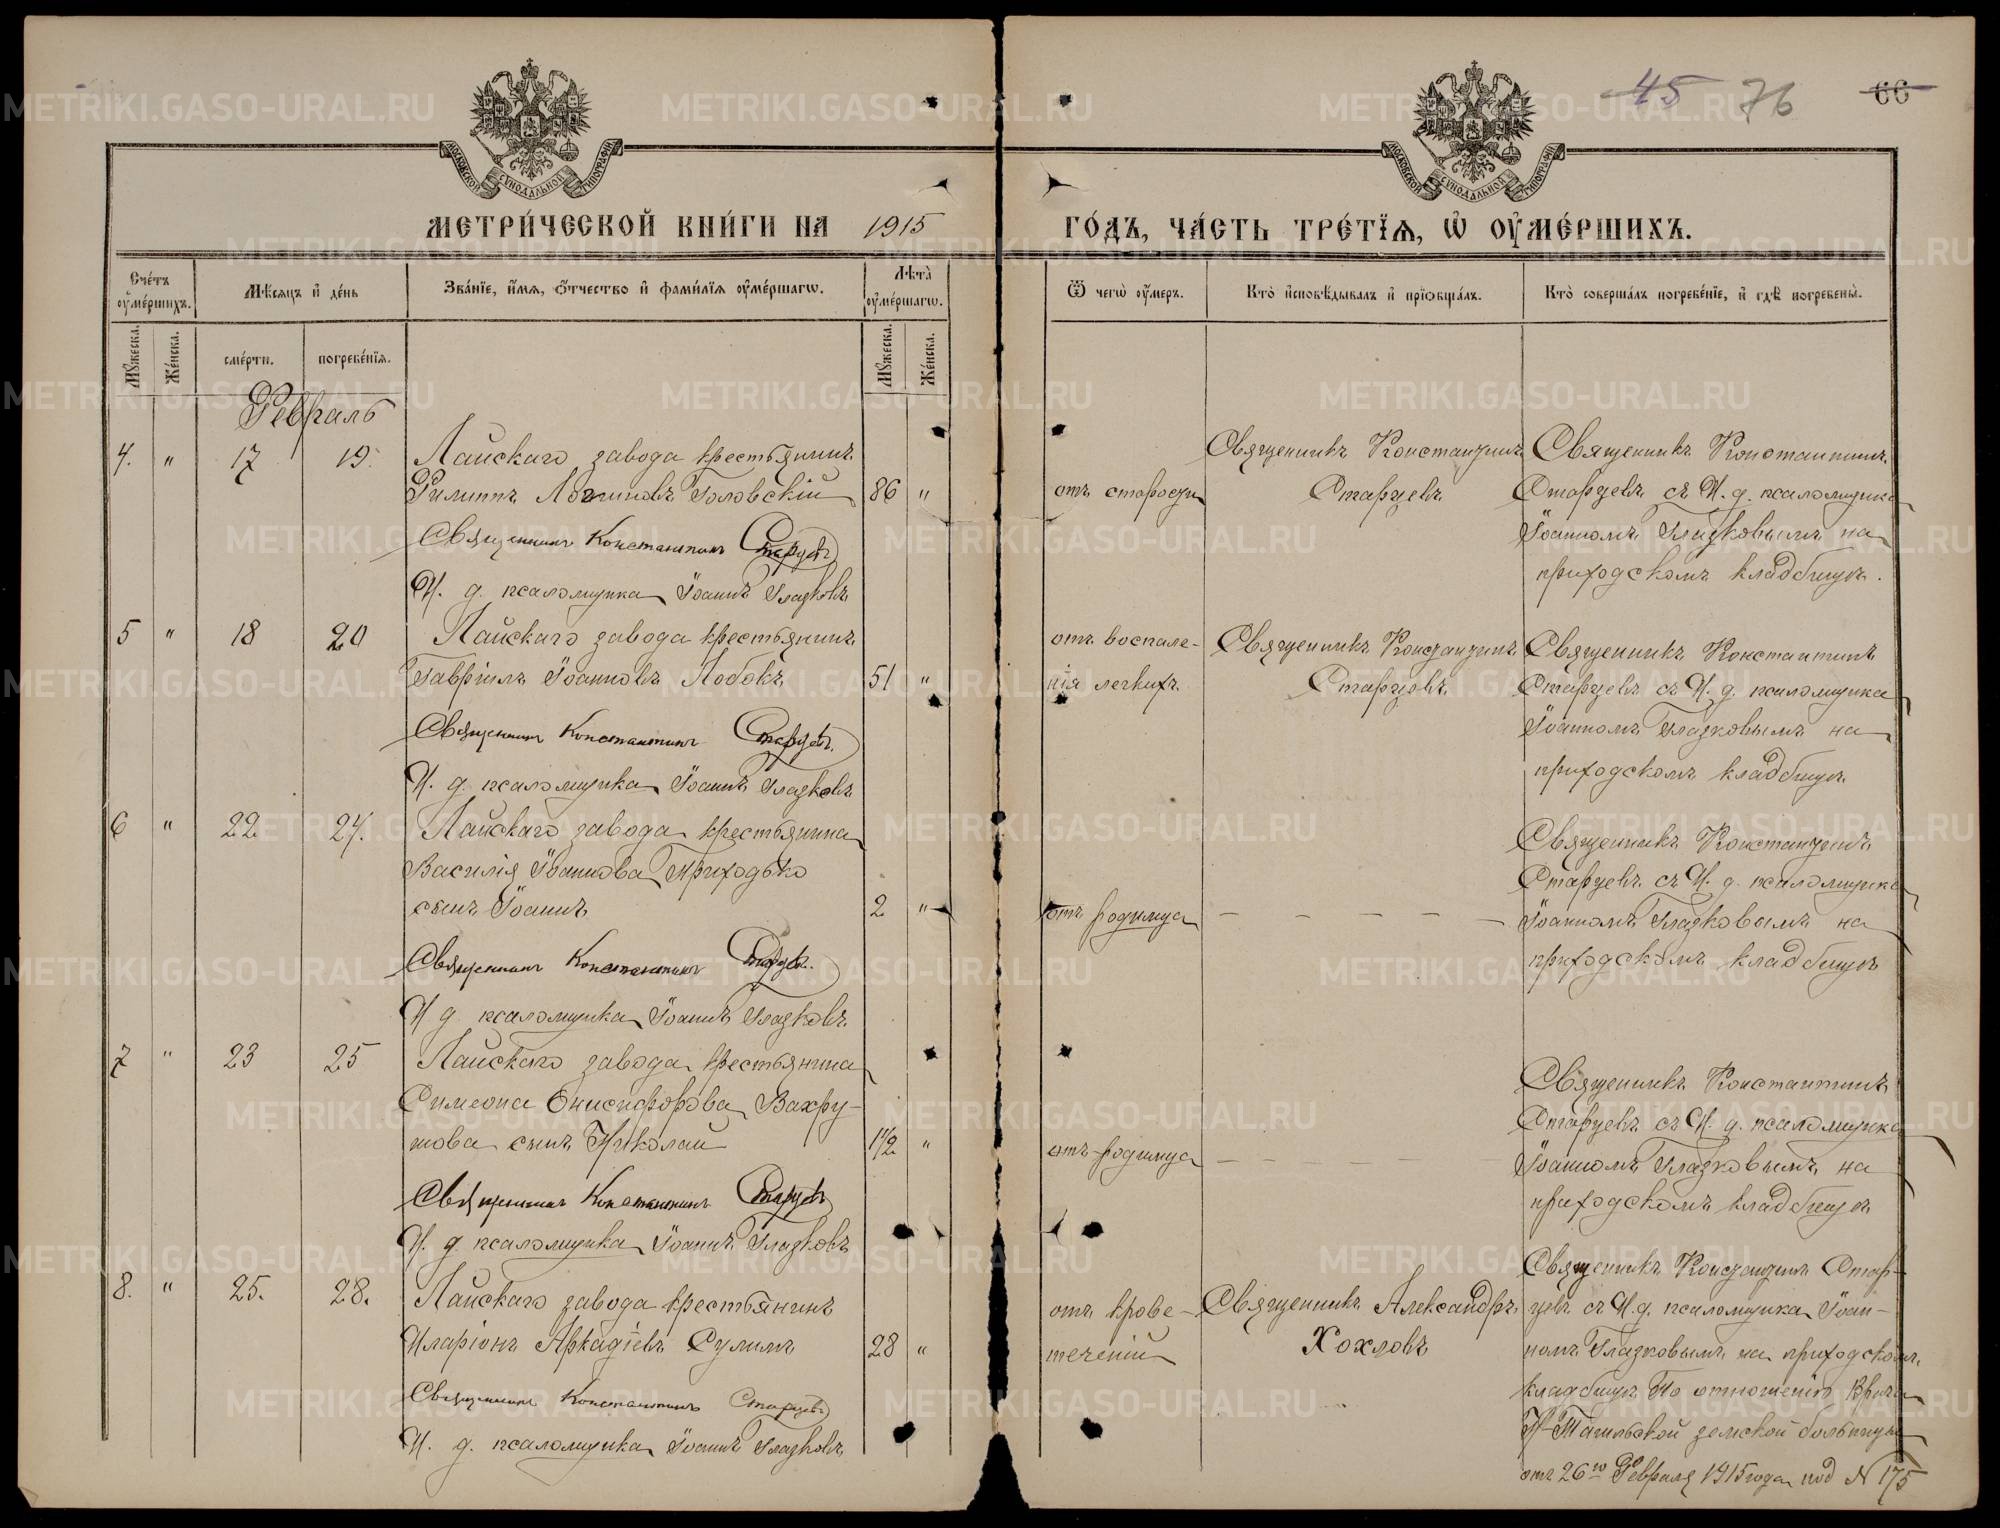 45 76 66
МОСКОВСКОЙ СѴНОДАЛЬНОЙ ТИПОГРАФІИ
МОСКОВСКОЙ СѴНОДАЛЬНОЙ ТИПОГРАФІИ
МЕТРИ́ЧЕСКОЙ КНИ́ГИ НА 1915 ГО́ДЪ, ЧА́СТЬ ТРЕ́ТЇѦ, Ѡ҆ ОУ҆МЕ́РШИХЪ.
Сче́тъ оу҆ме́ршихъ.
Мѣ́сѧцъ и҆ де́нь
Зва́нїе, и҆́мѧ, ѻ҆́тчество и҆ фами́лїѧ оу҆ме́ршагѡ.
Лѣ́та оу҆ме́ршагѡ.
Ѿ чегѡ̀ оу҆́меръ.
Кто̀ и҆сповѣ́дывалъ и҆ прїѡбща́лъ.
Кто̀ соверша́лъ погребе́нїе, и҆ гдѣ̀ погребены̀.
Мꙋ́жеска.
Же́нска.
сме́рти.
погребе́нїѧ.
Мꙋ́жеска.
Же́нска.
Февраль
4. " 17 19. Лайскаго завода крестьянинъ
Филиппъ Логиновъ Головскій 86 "
Священникъ Константинъ Старцевъ
И. д. псаломщика Іоаннъ Глазковъ
отъ старости
Священникъ Константинъ
Старцевъ
Священникъ Константинъ
Старцевъ съ И. д. псаломщика
Іоанномъ Глазковымъ на
приходскомъ кладбищѣ.
5 " 18 20 Лайскаго завода крестьянинъ
Гавріилъ Іоанновъ Лобокъ 51 "
Священникъ Константинъ Старцевъ.
И. д. псаломщика Іоаннъ Глазковъ
отъ воспале-
нія легкихъ
Священникъ Константинъ
Старцевъ.
Священникъ Константинъ
Старцевъ съ И. д. псаломщика
Іоанномъ Глазковымъ на
приходскомъ кладбищѣ
6 " 22 24. Лайскаго завода крестьянина
Василія Іоаннова Приходько
сынъ Іоаннъ 2 "
Священникъ Константинъ Старцевъ.
И д. псаломщика Іоаннъ Глазковъ
отъ родимца — — — — —
Священникъ Константинъ
Старцевъ съ И. д. псаломщика
Іоанномъ Глазковымъ на
приходскомъ кладбищѣ
7 " 23 25 Лайскаго завода крестьянина
Симеона Онисифорова Вахру-
шова сынъ Николай 1½ "
Священникъ Константинъ Старцевъ
И. д. псаломщика Іоаннъ Глазковъ
отъ родимца — — — — —
Священникъ Константинъ
Старцевъ съ И. д. псаломщика
Іоанномъ Глазковымъ на
приходскомъ кладбищѣ
8. " 25. 28. Лайскаго завода крестьянинъ
Иларіонъ Аркадіевъ Сулимъ 28 "
Священникъ Константинъ Старцевъ
И. д. псаломщика Іоаннъ Глазковъ
отъ крове-
теченій
Священникъ Александръ
Хохловъ
Священникъ Константинъ Стар-
цевъ съ И. д. псаломщика Іоан-
номъ Глазковымъ на приходскомъ
кладбищѣ По отношенію Врача
Н-Тагильской земской больницы
отъ 26го Февраля 1915 года под № 175
METRIKI.GASO-URAL.RU